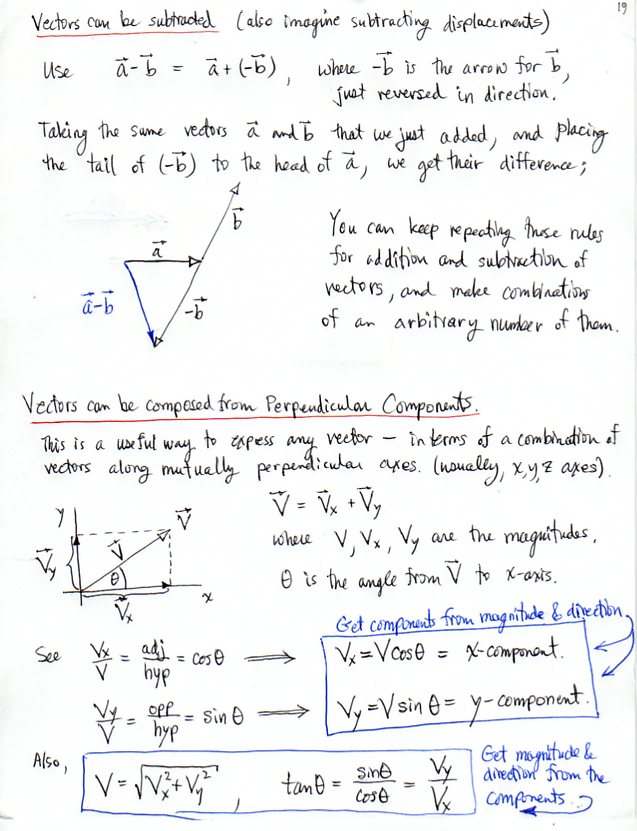 19
Vectors can be subtracted (also imagine subtracting displacements)
Use a⃗ - b⃗ = a⃗ + (-b⃗), where -b⃗ is the arrow for b⃗,
just reversed in direction.
Taking the same vectors a⃗ and b⃗ that we just added, and placing
the tail of (-b⃗) to the head of a⃗, we get their difference;
b⃗
a⃗
a⃗-b⃗
-b⃗
You can keep repeating these rules
for addition and subtraction of
vectors, and make combinations
of an arbitrary number of them.
Vectors can be composed from Perpendicular Components.
This is a useful way to express any vector – in terms of a combination of
vectors along mutually perpendicular axes. (usually, x,y,z axes).
y
V⃗
V⃗
V⃗y
θ
V⃗x
x
V⃗ = V⃗x + V⃗y
where V, Vx, Vy are the magnitudes,
θ is the angle from V⃗ to x-axis.
Get components from magnitude & direction
See Vx/V = adj/hyp = cosθ ⟹ Vx = V cosθ = x-component.
Vy/V = opp/hyp = sin θ ⟹ Vy = V sin θ = y-component.
Also, V = √(Vx² + Vy²), tanθ = sinθ/cosθ = Vy/Vx
Get magnitude &
direction from the
components.